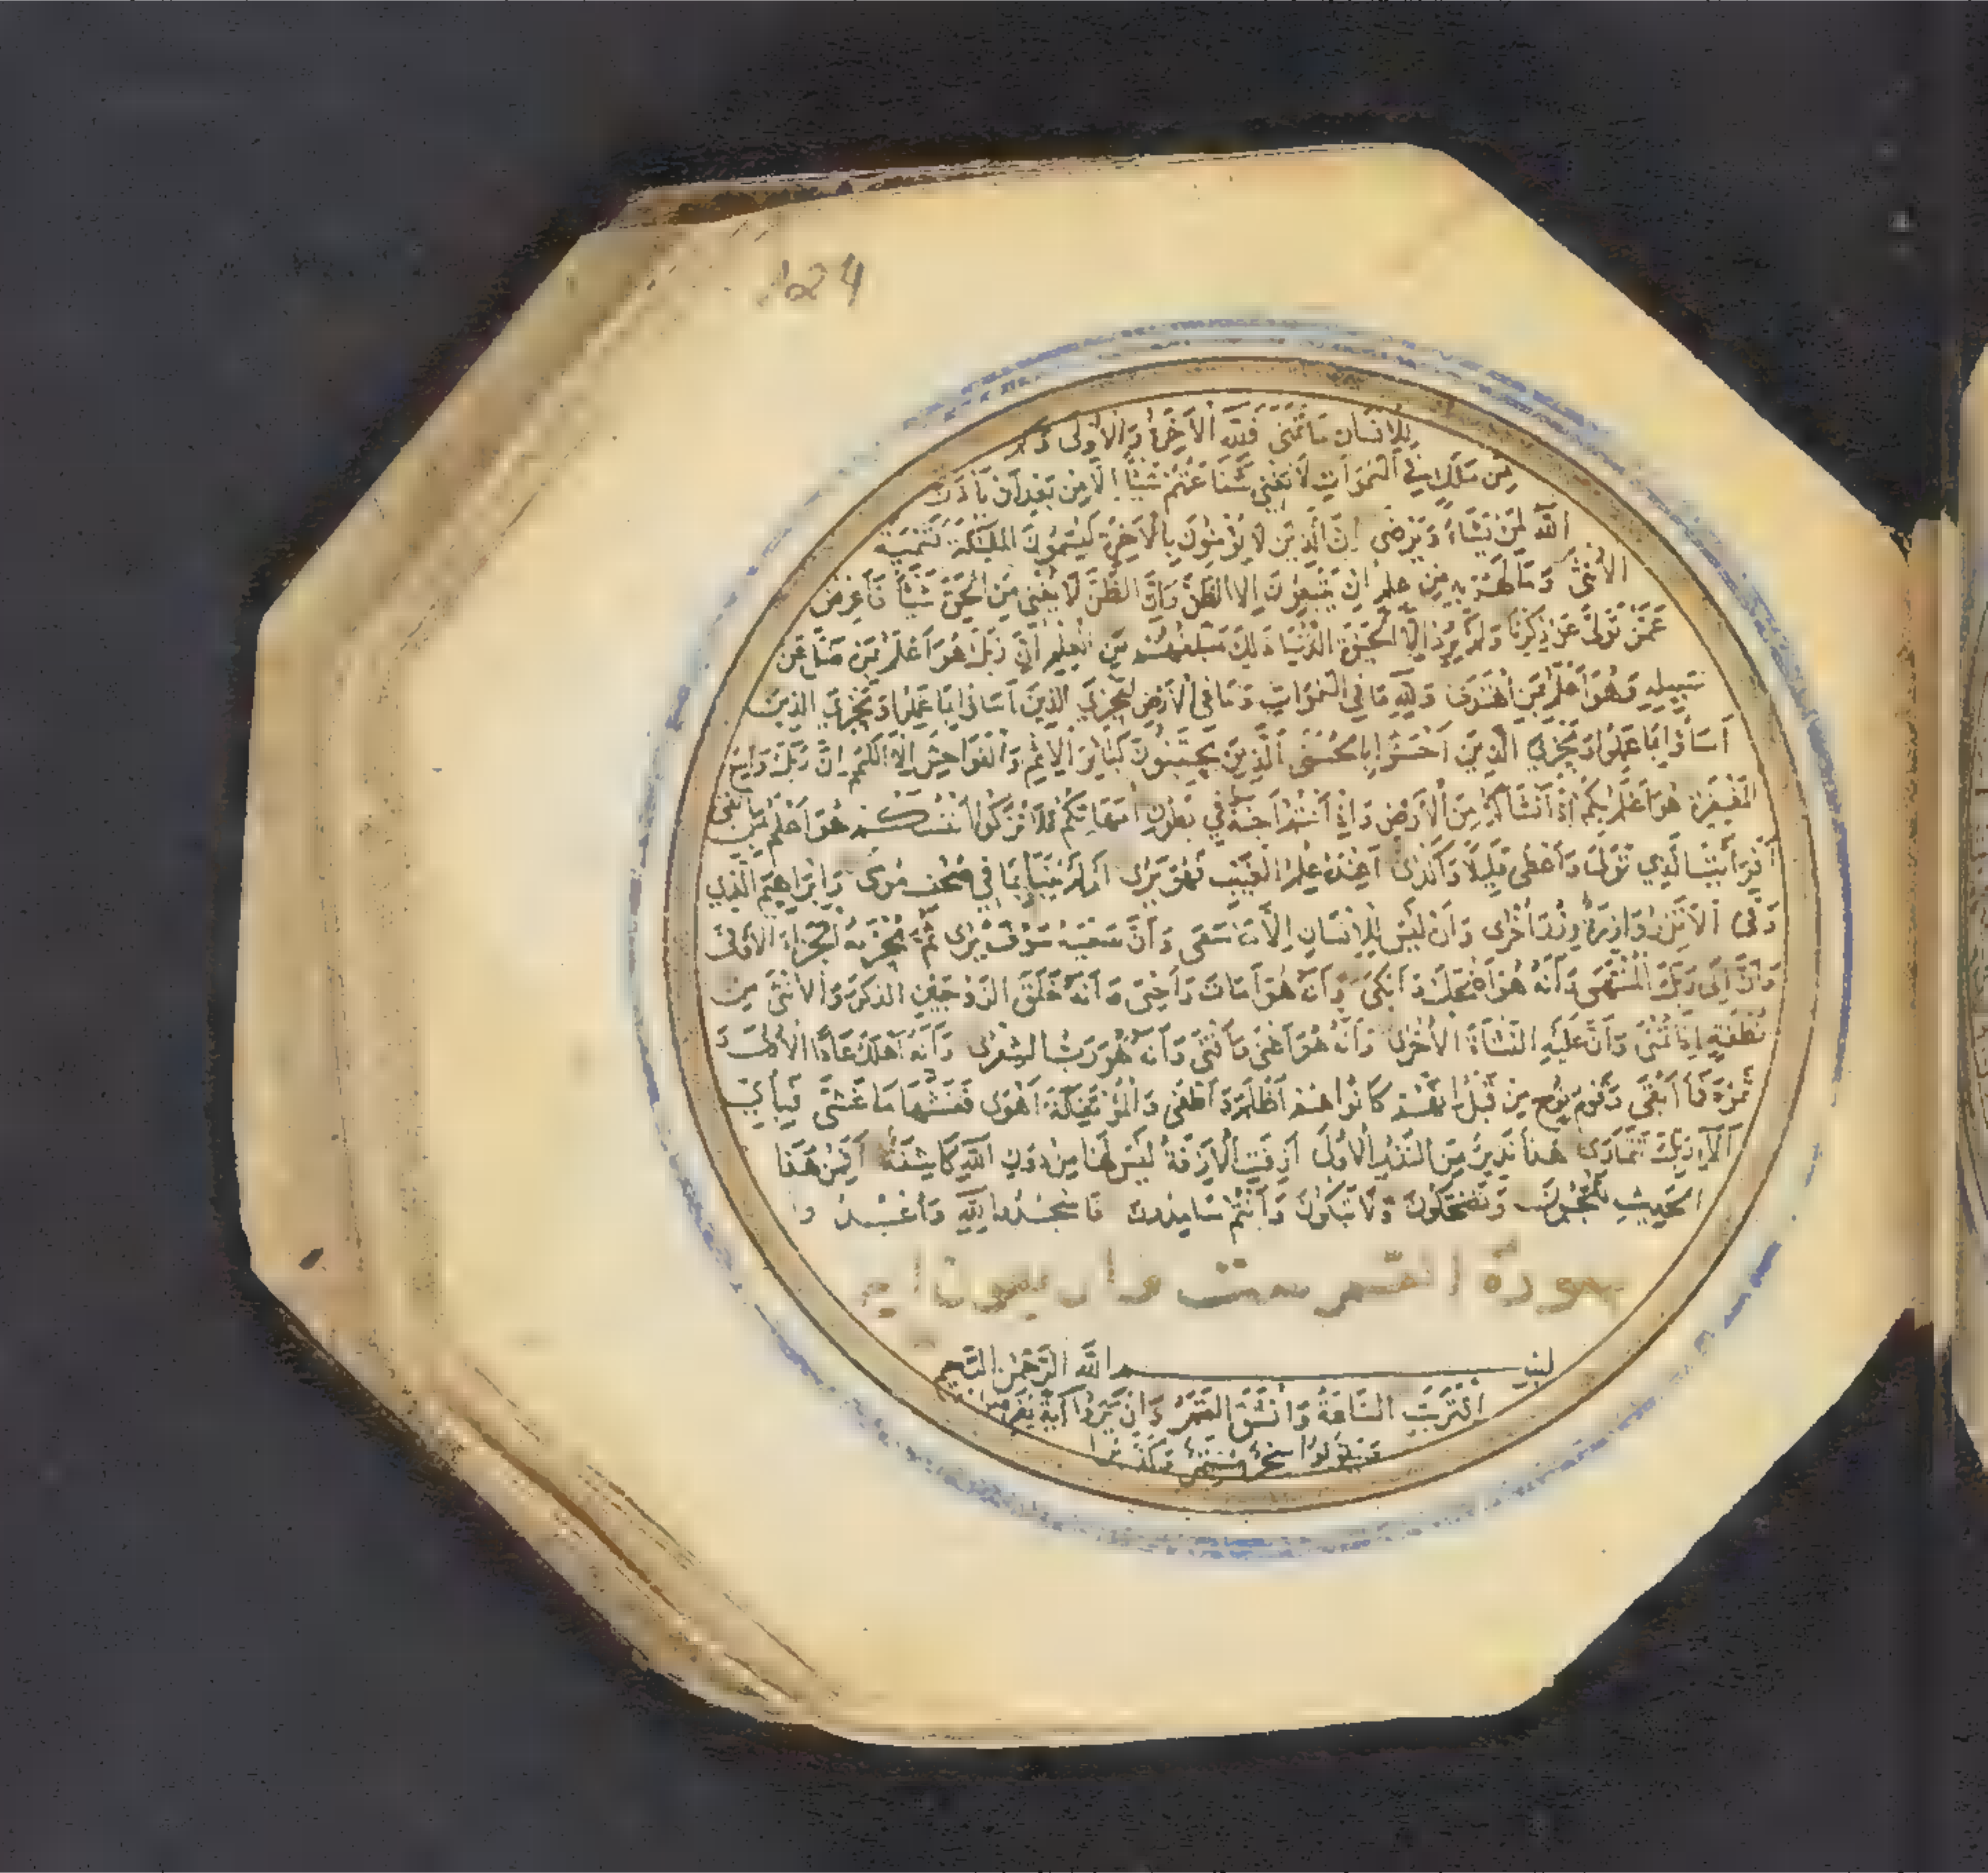 124
لِلْاِنْسَانِ مَا تَمَنَّى فَلِلَّهِ الْاٰخِرَةُ وَالْاُوْلَى وَكَمْ
مِنْ مَلَكٍ فِي السَّمَوَاتِ لَا تُغْنِي شَفَاعَتُهُمْ شَيْئًا اِلَّا مِنْ بَعْدِ اَنْ يَأْذَنَ
اللَّهُ لِمَنْ يَشَاءُ وَيَرْضَى اِنَّ الَّذِينَ لَا يُؤْمِنُونَ بِالْاٰخِرَةِ لَيُسَمُّونَ الْمَلٰئِكَةَ تَسْمِيَةَ
الْاُنْثَى وَمَا لَهُمْ بِهِ مِنْ عِلْمٍ اِنْ يَتَّبِعُونَ اِلَّا الظَّنَّ وَاِنَّ الظَّنَّ لَا يُغْنِي مِنَ الْحَقِّ شَيْئًا فَاَعْرِضْ
عَمَّنْ تَوَلَّى عَنْ ذِكْرِنَا وَلَمْ يُرِدْ اِلَّا الْحَيٰوةَ الدُّنْيَا ذَلِكَ مَبْلَغُهُمْ مِنَ الْعِلْمِ اِنَّ رَبَّكَ هُوَ اَعْلَمُ بِمَنْ ضَلَّ عَنْ
سَبِيلِهِ وَهُوَ اَعْلَمُ بِمَنِ اهْتَدَى وَلِلَّهِ مَا فِي السَّمَوَاتِ وَمَا فِي الْاَرْضِ لِيَجْزِيَ الَّذِينَ اَسَاؤُا بِمَا عَمِلُوا وَيَجْزِيَ الَّذِينَ
اَسَاؤُا بِمَا عَمِلُوا وَيَجْزِيَ الَّذِينَ اَحْسَنُوا بِالْحُسْنَى اَلَّذِينَ يَجْتَنِبُونَ كَبَائِرَ الْاِثْمِ وَالْفَوَاحِشَ اِلَّا اللَّمَمَ اِنَّ رَبَّكَ وَاسِعُ
الْمَغْفِرَةِ هُوَ اَعْلَمُ بِكُمْ اِذْ اَنْشَاَكُمْ مِنَ الْاَرْضِ وَاِذْ اَنْتُمْ اَجِنَّةٌ فِي بُطُونِ اُمَّهَاتِكُمْ فَلَا تُزَكُّوا اَنْفُسَكُمْ هُوَ اَعْلَمُ بِمَنِ اتَّقَى
اَفَرَاَيْتَ الَّذِي تَوَلَّى وَاَعْطَى قَلِيلًا وَاَكْدٰى اَعِنْدَهُ عِلْمُ الْغَيْبِ فَهُوَ يَرٰى اَمْ لَمْ يُنَبَّأْ بِمَا فِي صُحُفِ مُوسٰى وَاِبْرَاهِيمَ الَّذِي
وَفّٰى اَلَّا تَزِرُ وَازِرَةٌ وِزْرَ اُخْرٰى وَاَنْ لَيْسَ لِلْاِنْسَانِ اِلَّا مَا سَعٰى وَاَنَّ سَعْيَهُ سَوْفَ يُرٰى ثُمَّ يُجْزٰيهُ الْجَزَاءَ الْاَوْفٰى
وَاَنَّ اِلٰى رَبِّكَ الْمُنْتَهٰى وَاَنَّهُ هُوَ اَضْحَكَ وَاَبْكٰى وَاَنَّهُ هُوَ اَمَاتَ وَاَحْيٰى وَاَنَّهُ خَلَقَ الزَّوْجَيْنِ الذَّكَرَ وَالْاُنْثٰى مِنْ
نُطْفَةٍ اِذَا تُمْنٰى وَاَنَّ عَلَيْهِ النَّشْاَةَ الْاُخْرٰى وَاَنَّهُ هُوَ اَغْنٰى وَاَقْنٰى وَاَنَّهُ هُوَ رَبُّ الشِّعْرٰى وَاَنَّهُ اَهْلَكَ عَادًا الْاُولٰى وَ
ثَمُودَ فَمَا اَبْقٰى وَقَوْمَ نُوحٍ مِنْ قَبْلُ اِنَّهُمْ كَانُوا هُمْ اَظْلَمَ وَاَطْغٰى وَالْمُؤْتَفِكَةَ اَهْوٰى فَغَشّٰيهَا مَا غَشّٰى فَبِاَيِّ
اٰلَاءِ رَبِّكَ تَتَمَارٰى هٰذَا نَذِيرٌ مِنَ النُّذُرِ الْاُولٰى اَزِفَتِ الْاٰزِفَةُ لَيْسَ لَهَا مِنْ دُونِ اللَّهِ كَاشِفَةٌ اَفَمِنْ هٰذَا
الْحَدِيثِ تَعْجَبُونَ وَتَضْحَكُونَ وَلَا تَبْكُونَ وَاَنْتُمْ سَامِدُونَ فَاسْجُدُوا لِلَّهِ وَاعْبُدُوا
سورة القمر
بِسْمِ اللَّهِ الرَّحْمٰنِ الرَّحِيمِ
اِقْتَرَبَتِ السَّاعَةُ وَانْشَقَّ الْقَمَرُ وَاِنْ يَرَوْا اٰيَةً يُعْرِضُوا
وَيَقُولُوا سِحْرٌ مُسْتَمِرٌّ وَكَذَّبُوا